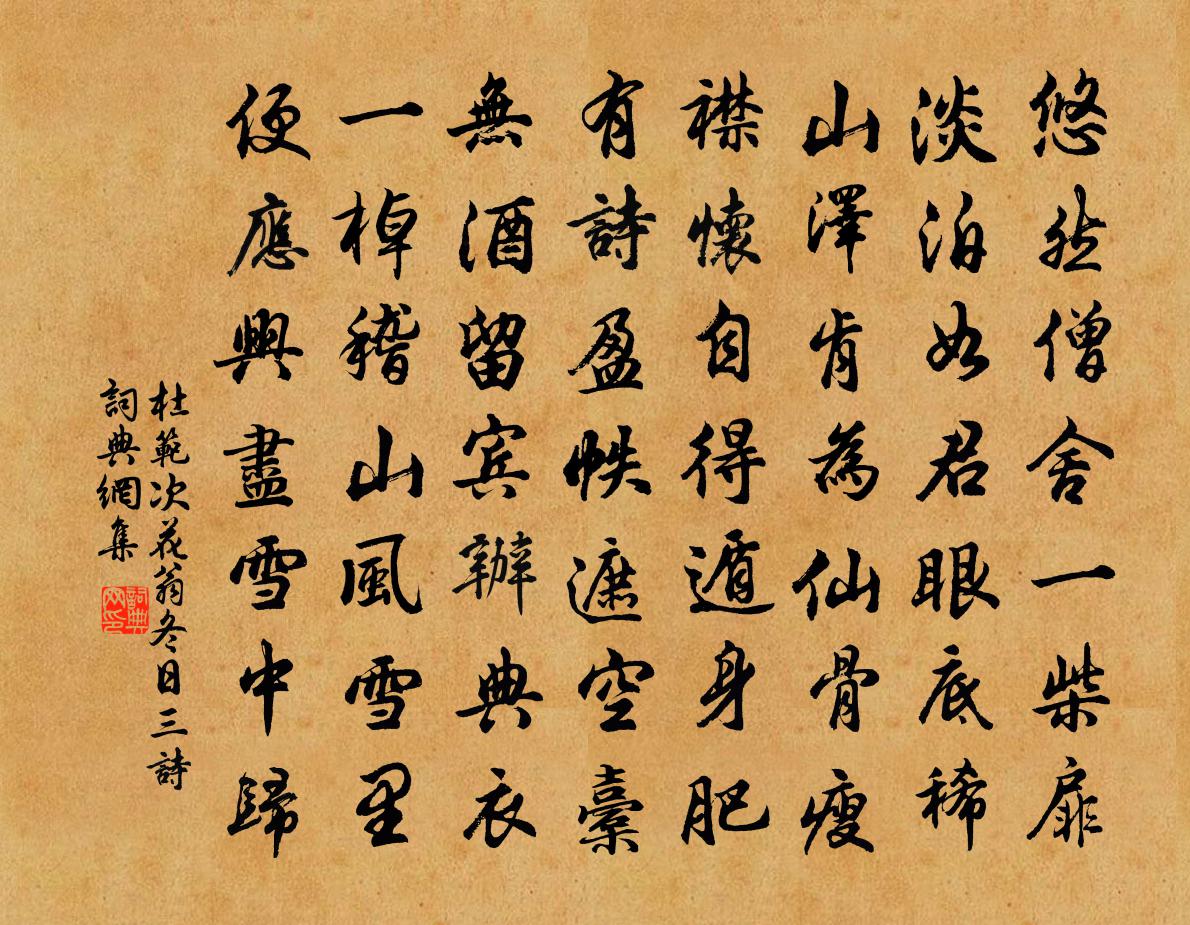 悠然僧舍一柴扉
淡泊如君眼底稀
山澤肯為仙骨瘦
襟懷自得遁身肥
有詩盈帙遮空橐
無酒留賓辦典衣
一棹稽山風雪里
便應興盡雪中歸
杜範次花翁冬日三詩
詞典網集
詞典网印